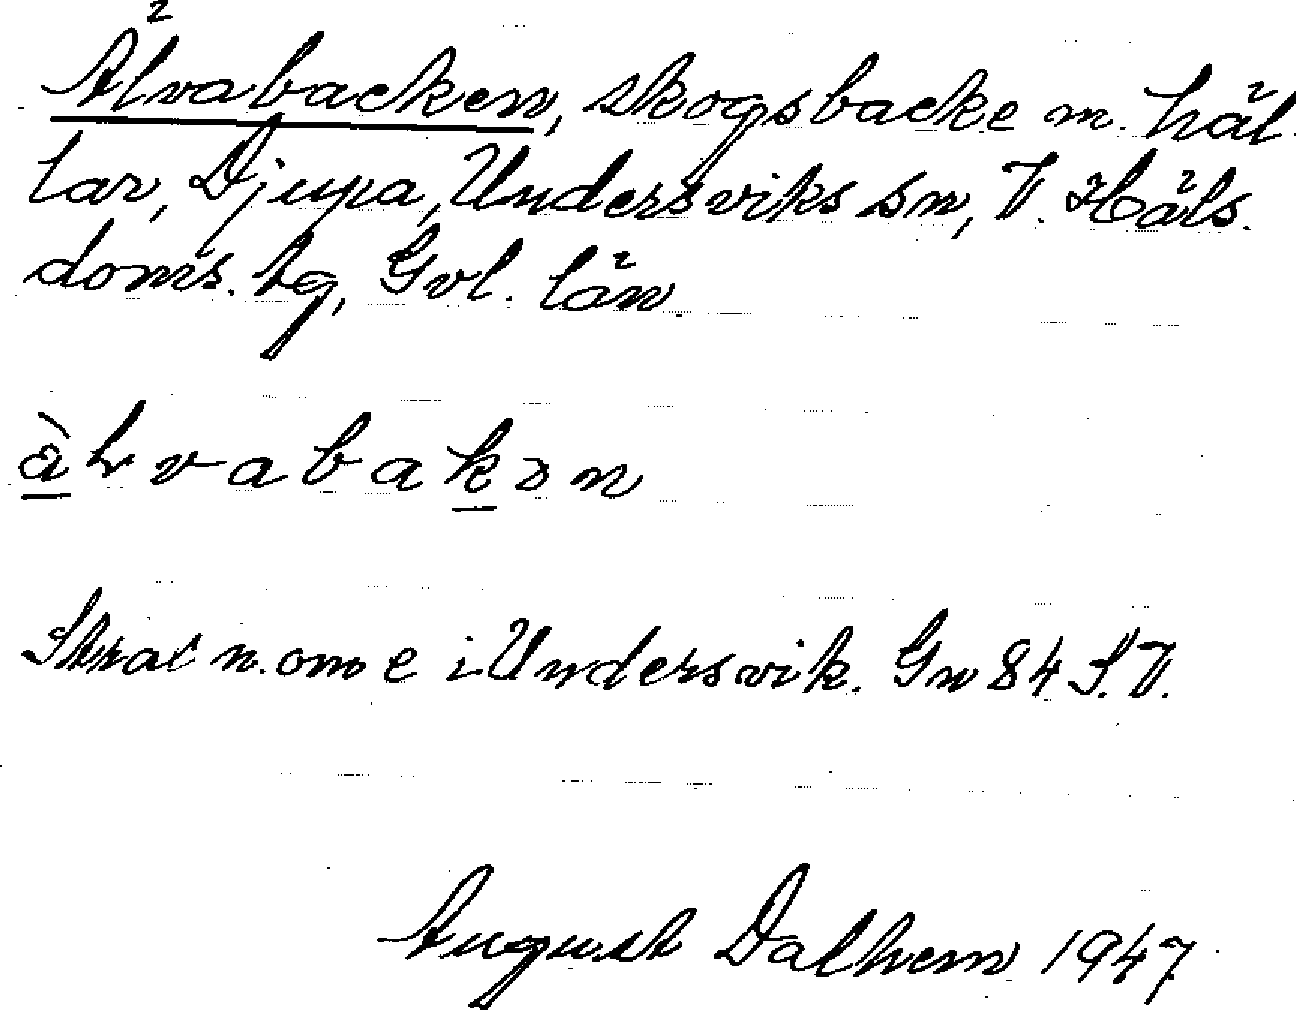 Älvabacken, skogsbacke m. häl-
lar, Djupa, Undersviks sn, V. Häls.
doms. lg, Gvl. län
àlvabakən
i Undersvik. Gw 84 S.V.
August Dalhem 1947